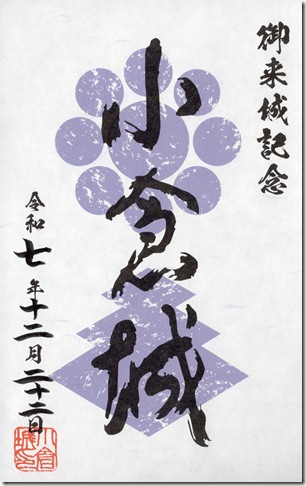 御来城記念
小倉城
令和七年十二月二十二日
小倉城印